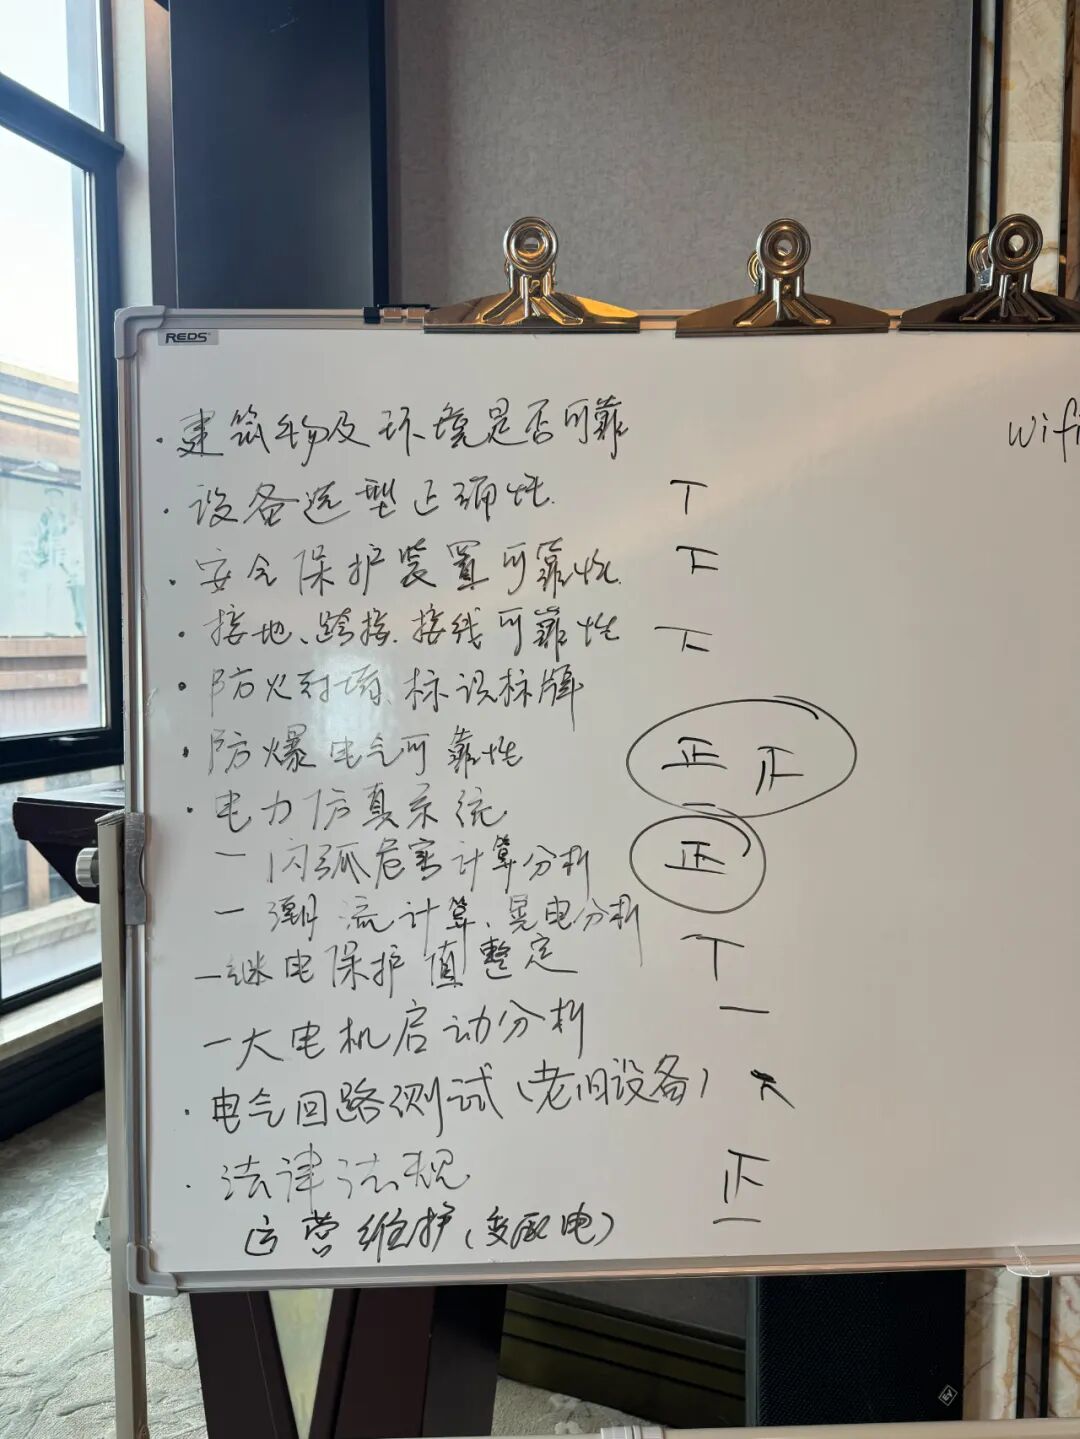 REDS
·建筑物及环境是否可靠
wifi
·设备选型正确性. 丅
·安全保护装置可靠性. 下
·接地、跨接.接线可靠性 下
·防火封堵、标识标牌
·防爆电气可靠性 正 正
·电力仿真系统
一闪弧危害计算分析 正
一潮流计算、晃电分析
一继电保护值整定 丅
一大电机启动分析 一
·电气回路测试(老旧设备)
·法律法规 正
运营维护(变配电) 一